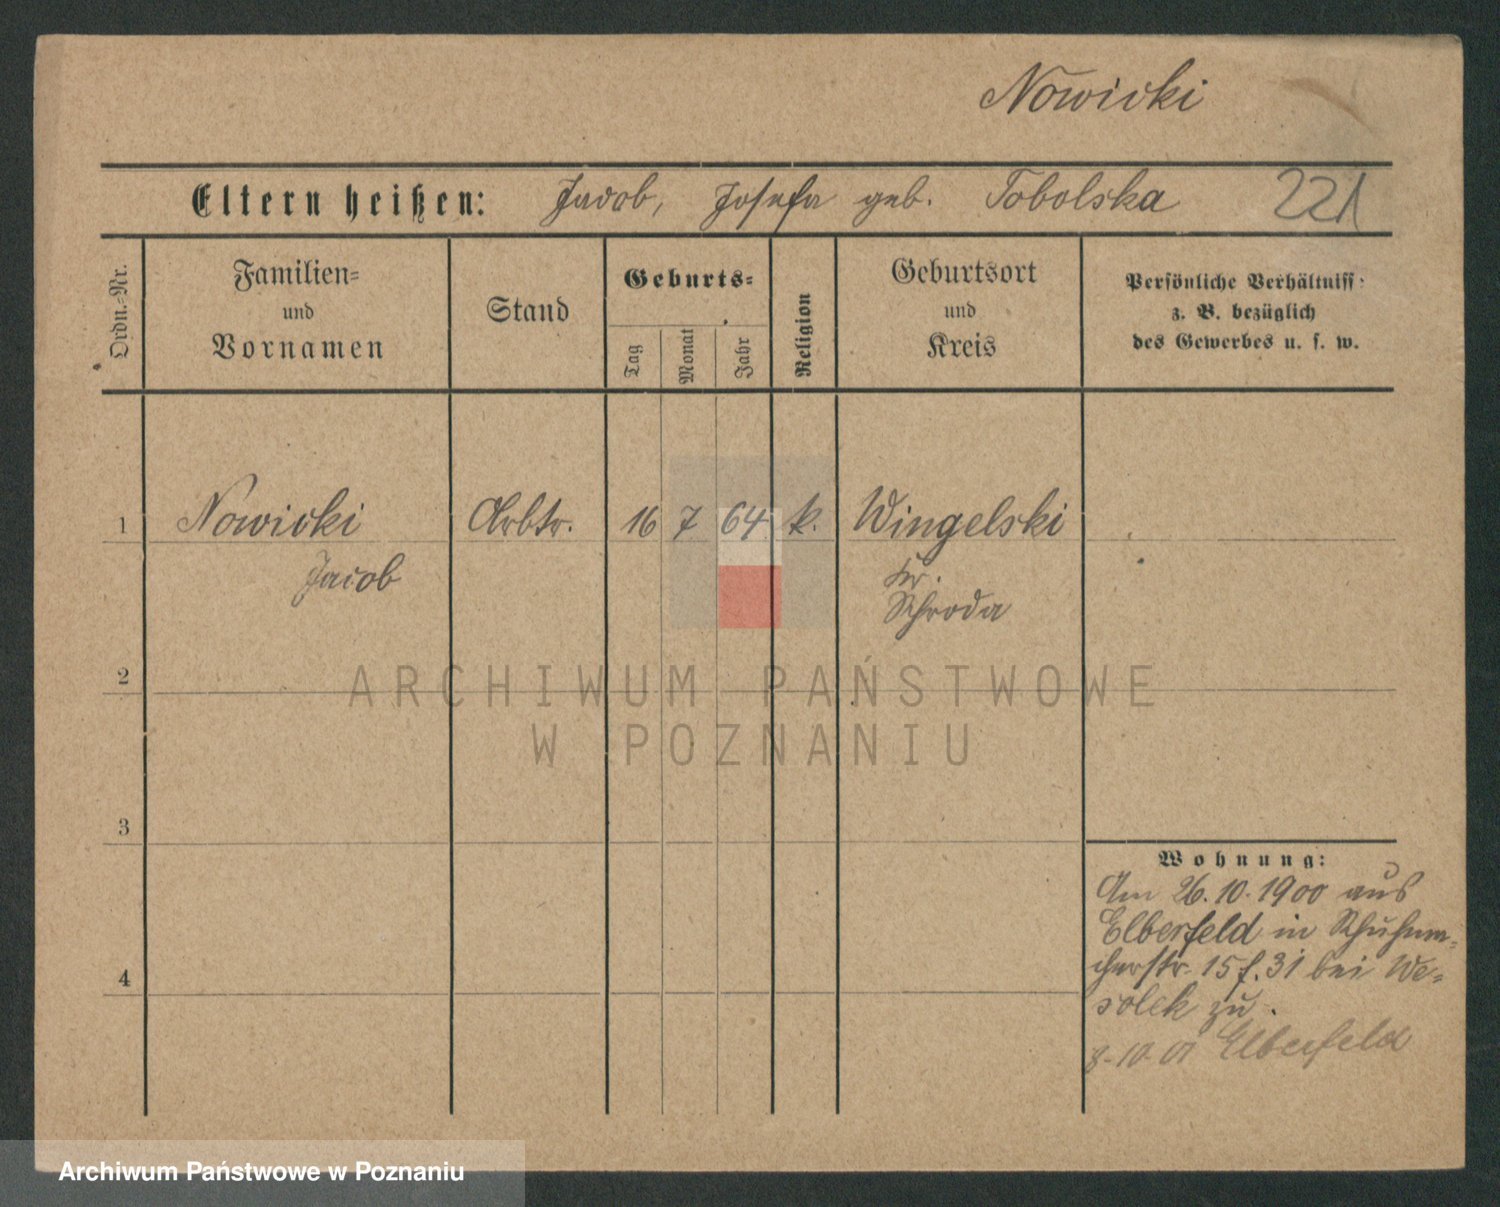 Nowicki
Eltern heißen: Jacob, Josefa geb. Tobolska 221
Ordn.-Nr.
Familien-
und
Vornamen
Stand
Geburts-
Tag
Monat
Jahr
Religion
Geburtsort
und
Kreis
Persönliche Verhältniss-
z. B. bezüglich
des Gewerbes u. s. w.
1 Nowicki Arbtr. 16 7 64 k. Wingelski
Jacob
Kr.
Schroda
2
ARCHIWUM PAŃSTWOWE
W POZNANIU
3
Wohnung:
Am 26.10.1900 aus
Elberfeld in Schuhma-
cherstr. 15 f. 31 bei We-
solek zu.
4
8-10 01 Elberfeld
Archiwum Państwowe w Poznaniu